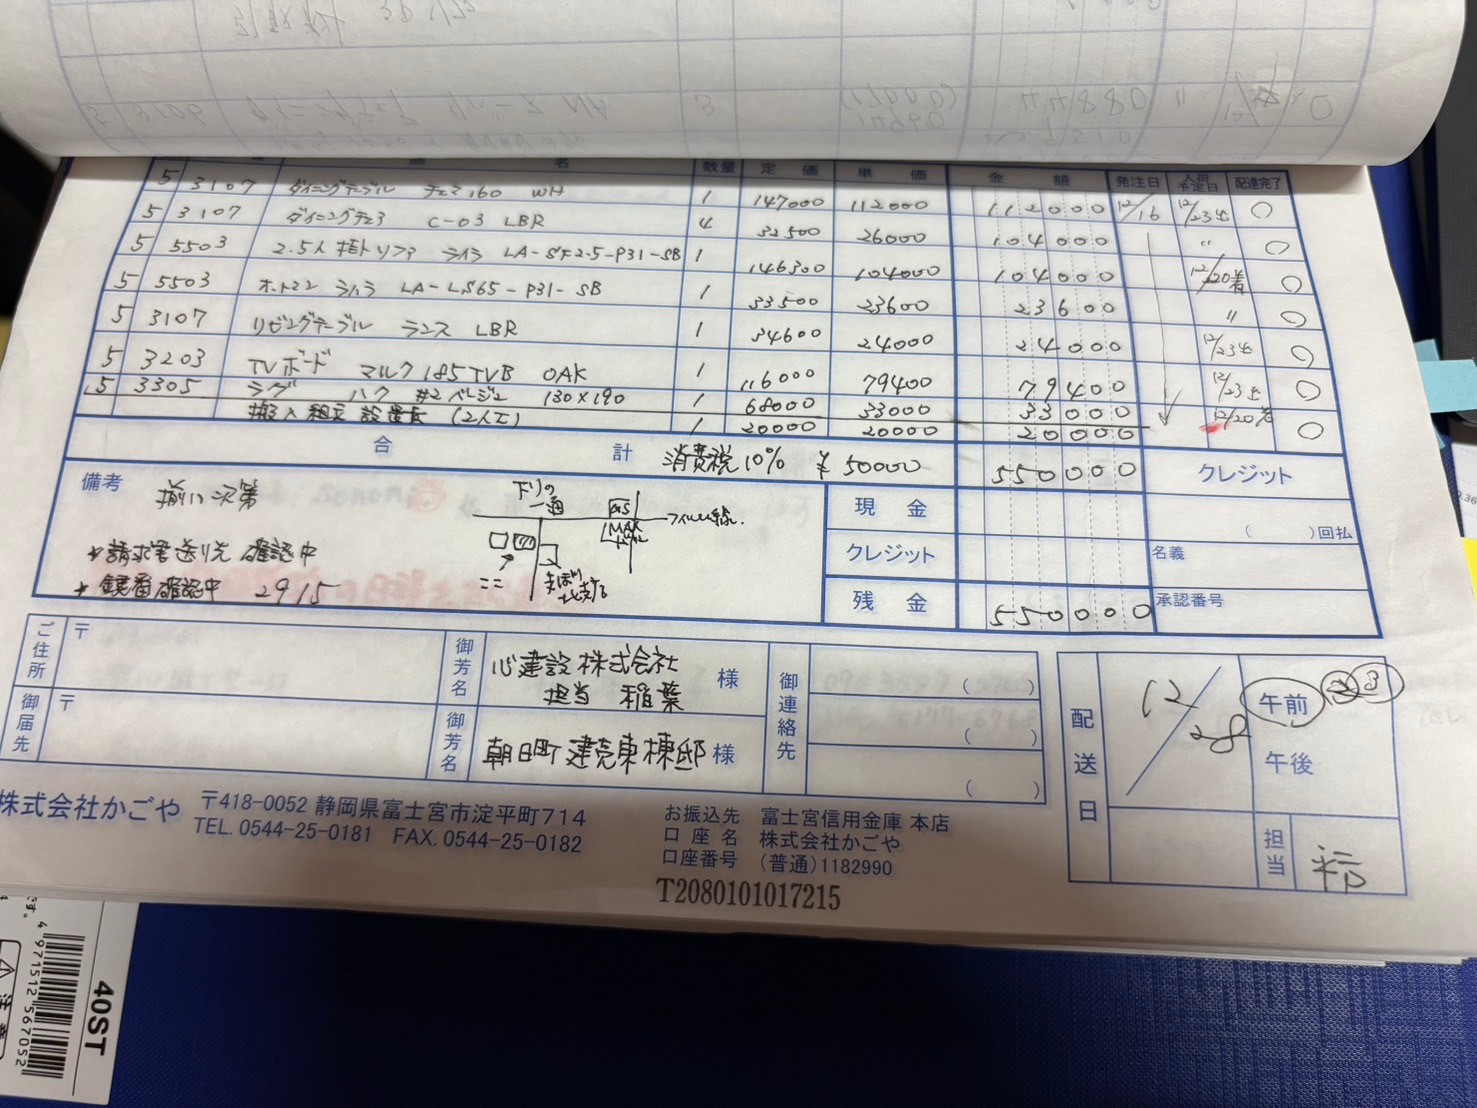 品 名 数量 定価 単価 金額 発注日 入荷予定日 配達完了
5 3107 ダイニングテーブル チェマ160 WH 1 147000 112000 112000 12/16 12/23
5 3107 ダイニングチェア C-03 LBR 4 32500 26000 104000 〃
5 5503 2.5人掛ソファ ライラ LA-SF2.5-P31-SB 1 146300 104000 104000 12/20着
5 5503 オットマン ライラ LA-LS65-P31-SB 1 33500 23600 23600 〃
5 3107 リビングテーブル ランス LBR 1 34600 24000 24000 12/23
5 3203 TVボード マルク185TVB OAK 1 116000 79400 79400 12/23
5 3305 ラグ ハク #2ベージュ 130×190 1 68000 33000 33000 12/20着
搬入組立設置 (2人工) 1 20000 20000 20000
合計 消費税10% ¥50000 550000 クレジット
備考 揃い次第
*請求書送り先確認中
*鍵番確認中 2915
下りの一通
GS
MAX
ここ
現金
クレジット
残金 550000
( )回払
名義
承認番号
ご住所 〒
御芳名 心建設株式会社 様
担当 稲葉
御届先 〒
御芳名 朝日町建売東棟邸 様
御連絡先
( )
( )
( )
配送日 12/28 午前 ② ③
午後
担当
株式会社かごや 〒418-0052 静岡県富士宮市淀平町714
TEL.0544-25-0181 FAX.0544-25-0182
お振込先 富士宮信用金庫 本店
口座名 株式会社かごや
口座番号 (普通)1182990
T2080101017215
40ST
4 971512 567052